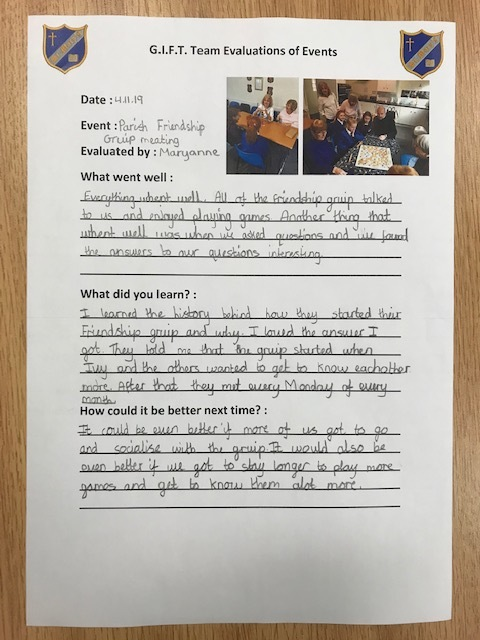 G.I.F.T. Team Evaluations of Events
Date : 4.11.19
Event : Parish Friendship
Gruip meating
Evaluated by : Maryanne
What went well :
Everything whent well. All of the Friendship gruip talked
to us and enjoyed playing games. Another thing that
whent well was when we asked questions and we found
the answers to our questions interesting.
What did you learn? :
I learned the history behind how they started their
Friendship gruip and why. I loved the answer I
got. They told me that the gruip started when
Ivy and the others wanted to get to know eachother
more. After that they met every Monday of every
month.
How could it be better next time? :
It could be even better if more of us got to go
and socialise with the gruip. It would also be
even better if we got to stay longer to play more
games and get to know them alot more.